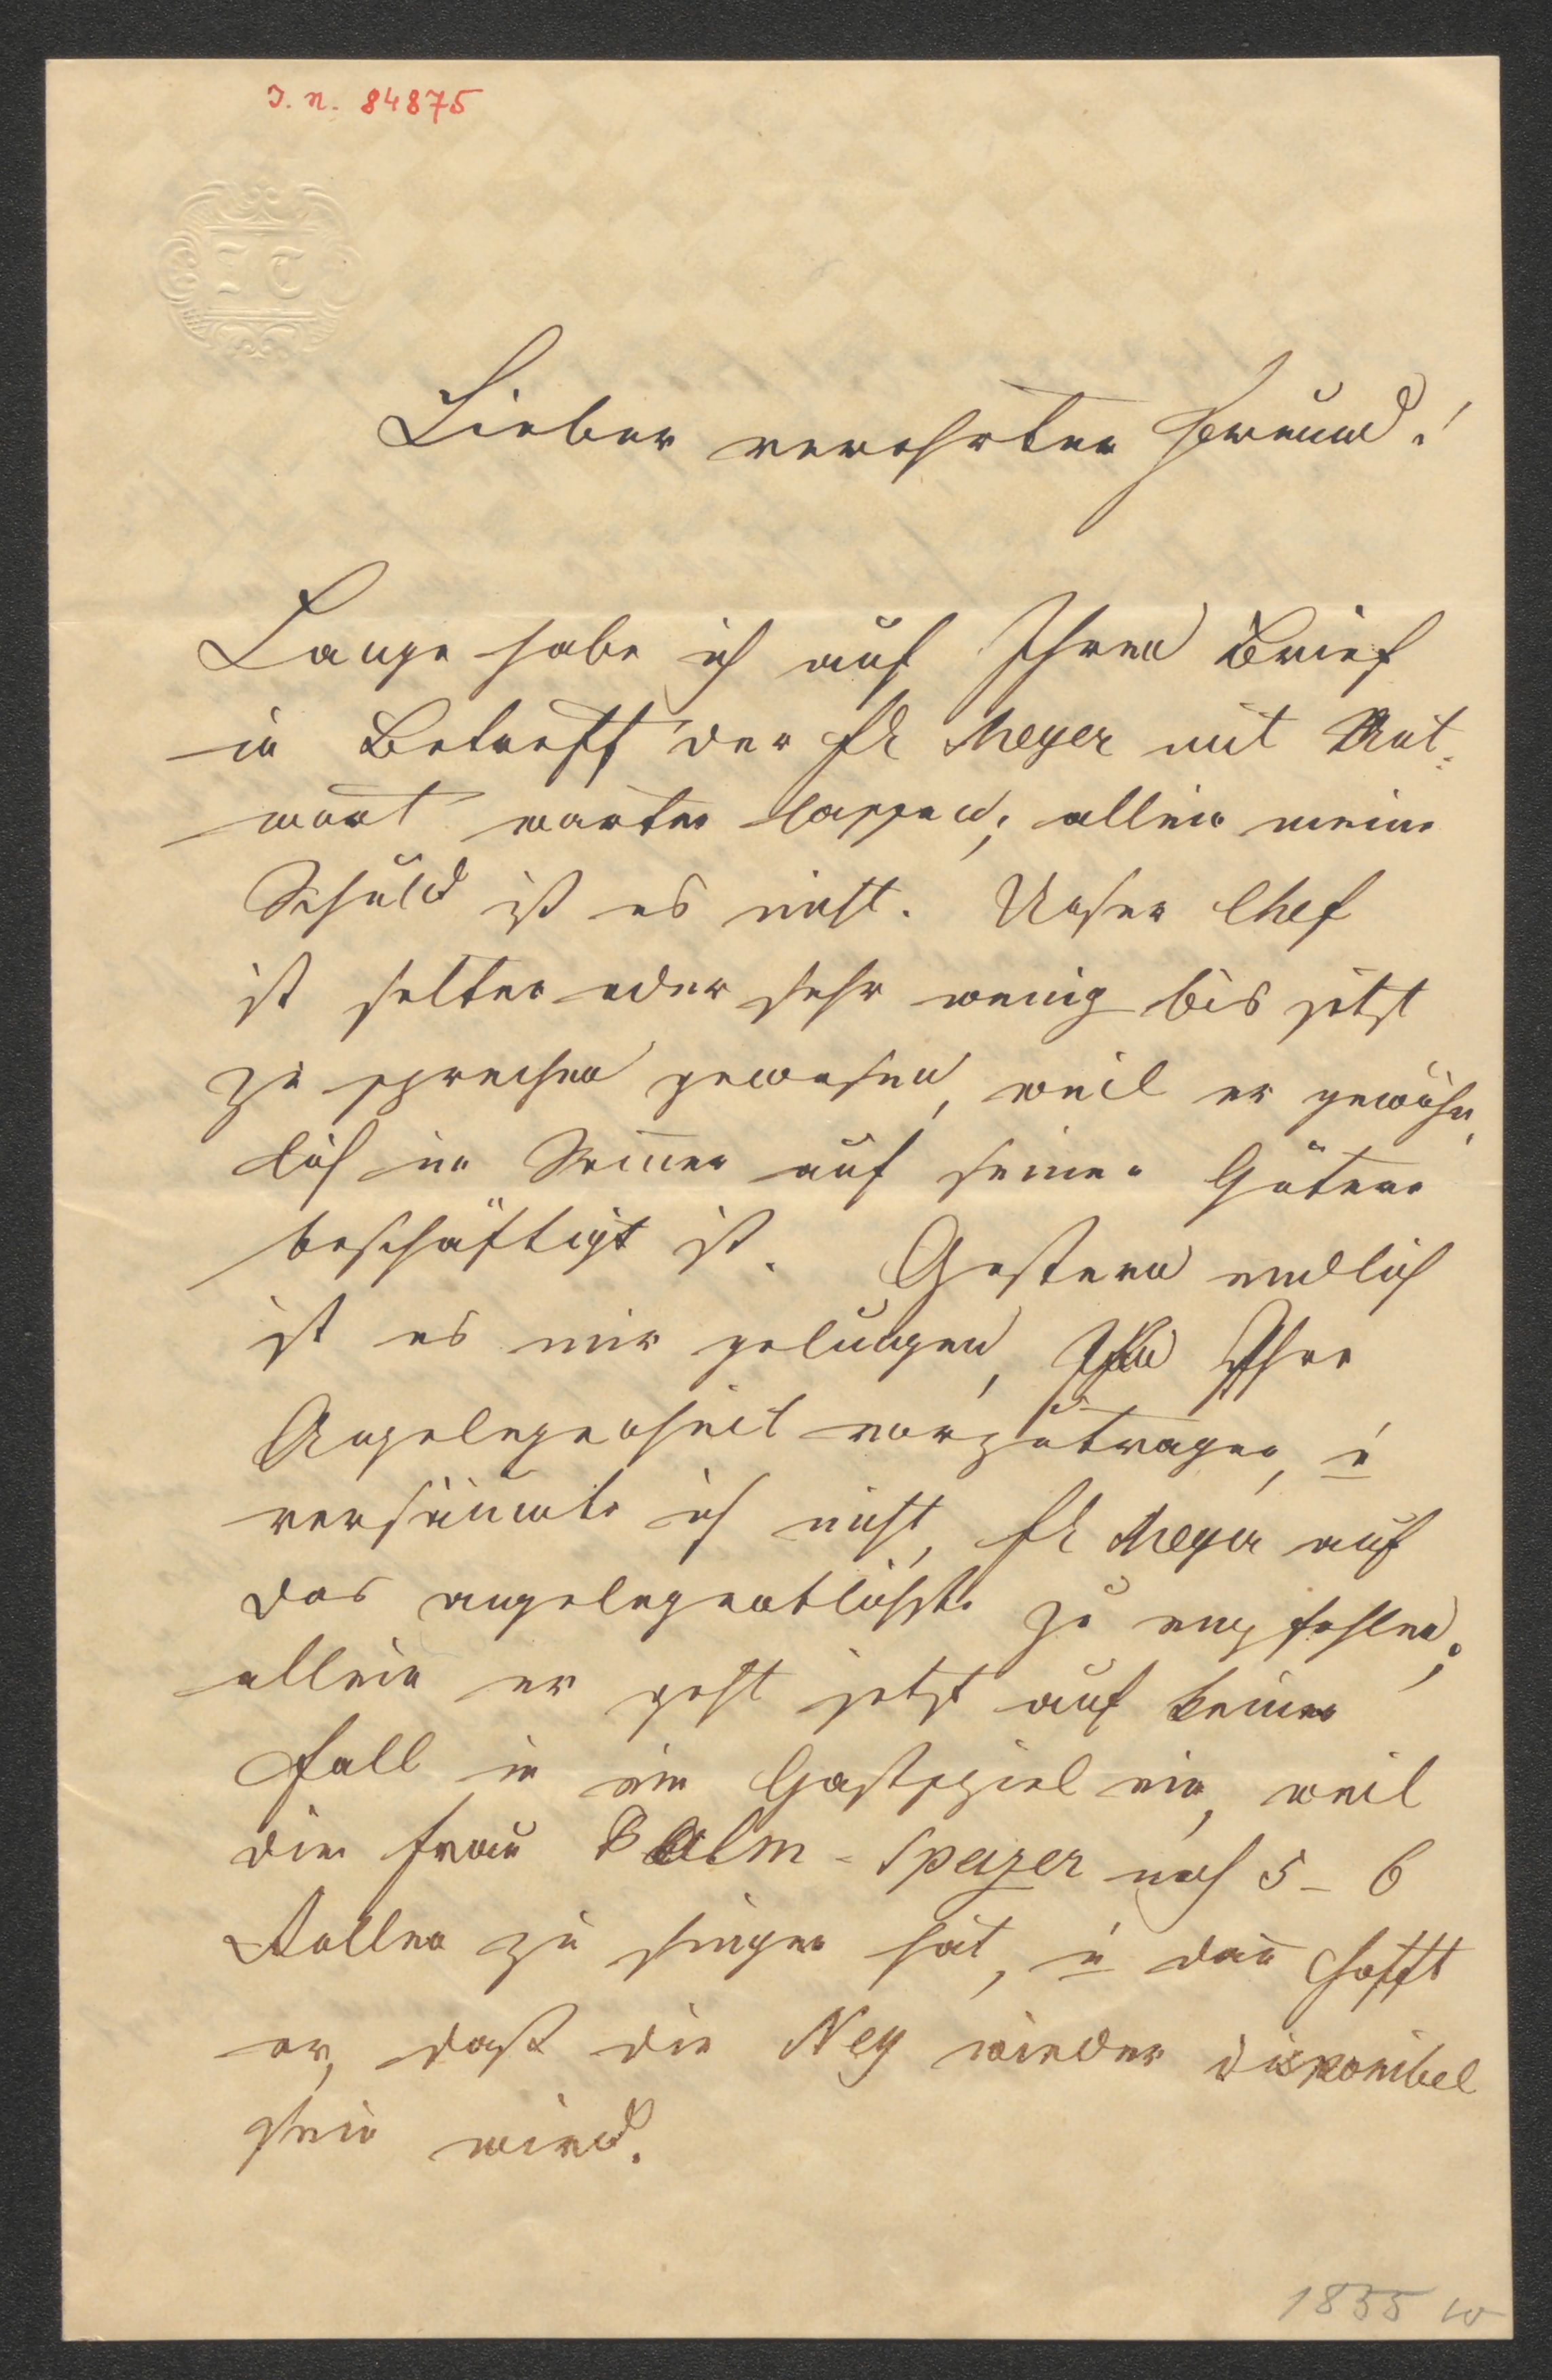 I. N. 84875
Lieber verehrter Freund!
Lange habe ich auf Ihren Brief
in Betreff der Fr Meyer mit Ant-
wort warten lassen; allein meine
Schuld ist es nicht. Unser Chef
ist selten oder sehr wenig bis jetzt
zu sprechen gewesen, weil er gewöhn-
lich im Som̅er auf seinen Gütern
beschäftigt ist. Gestern endlich
ist es mir gelungen, Ihm Ihre
Angelegenheit vorzutragen, u
versäumte ich nicht, Fr Meyer auf
das angelegentlichste zu empfehlen;
allein er geht jetzt auf keinen
Fall in ein Gastspiel ein, weil
die Frau Palm-Spazer noch 5–6
Rollen zu singen hat, u dan̅ hofft
er, daß die Ney wieder disponibel
sein wird.
1855